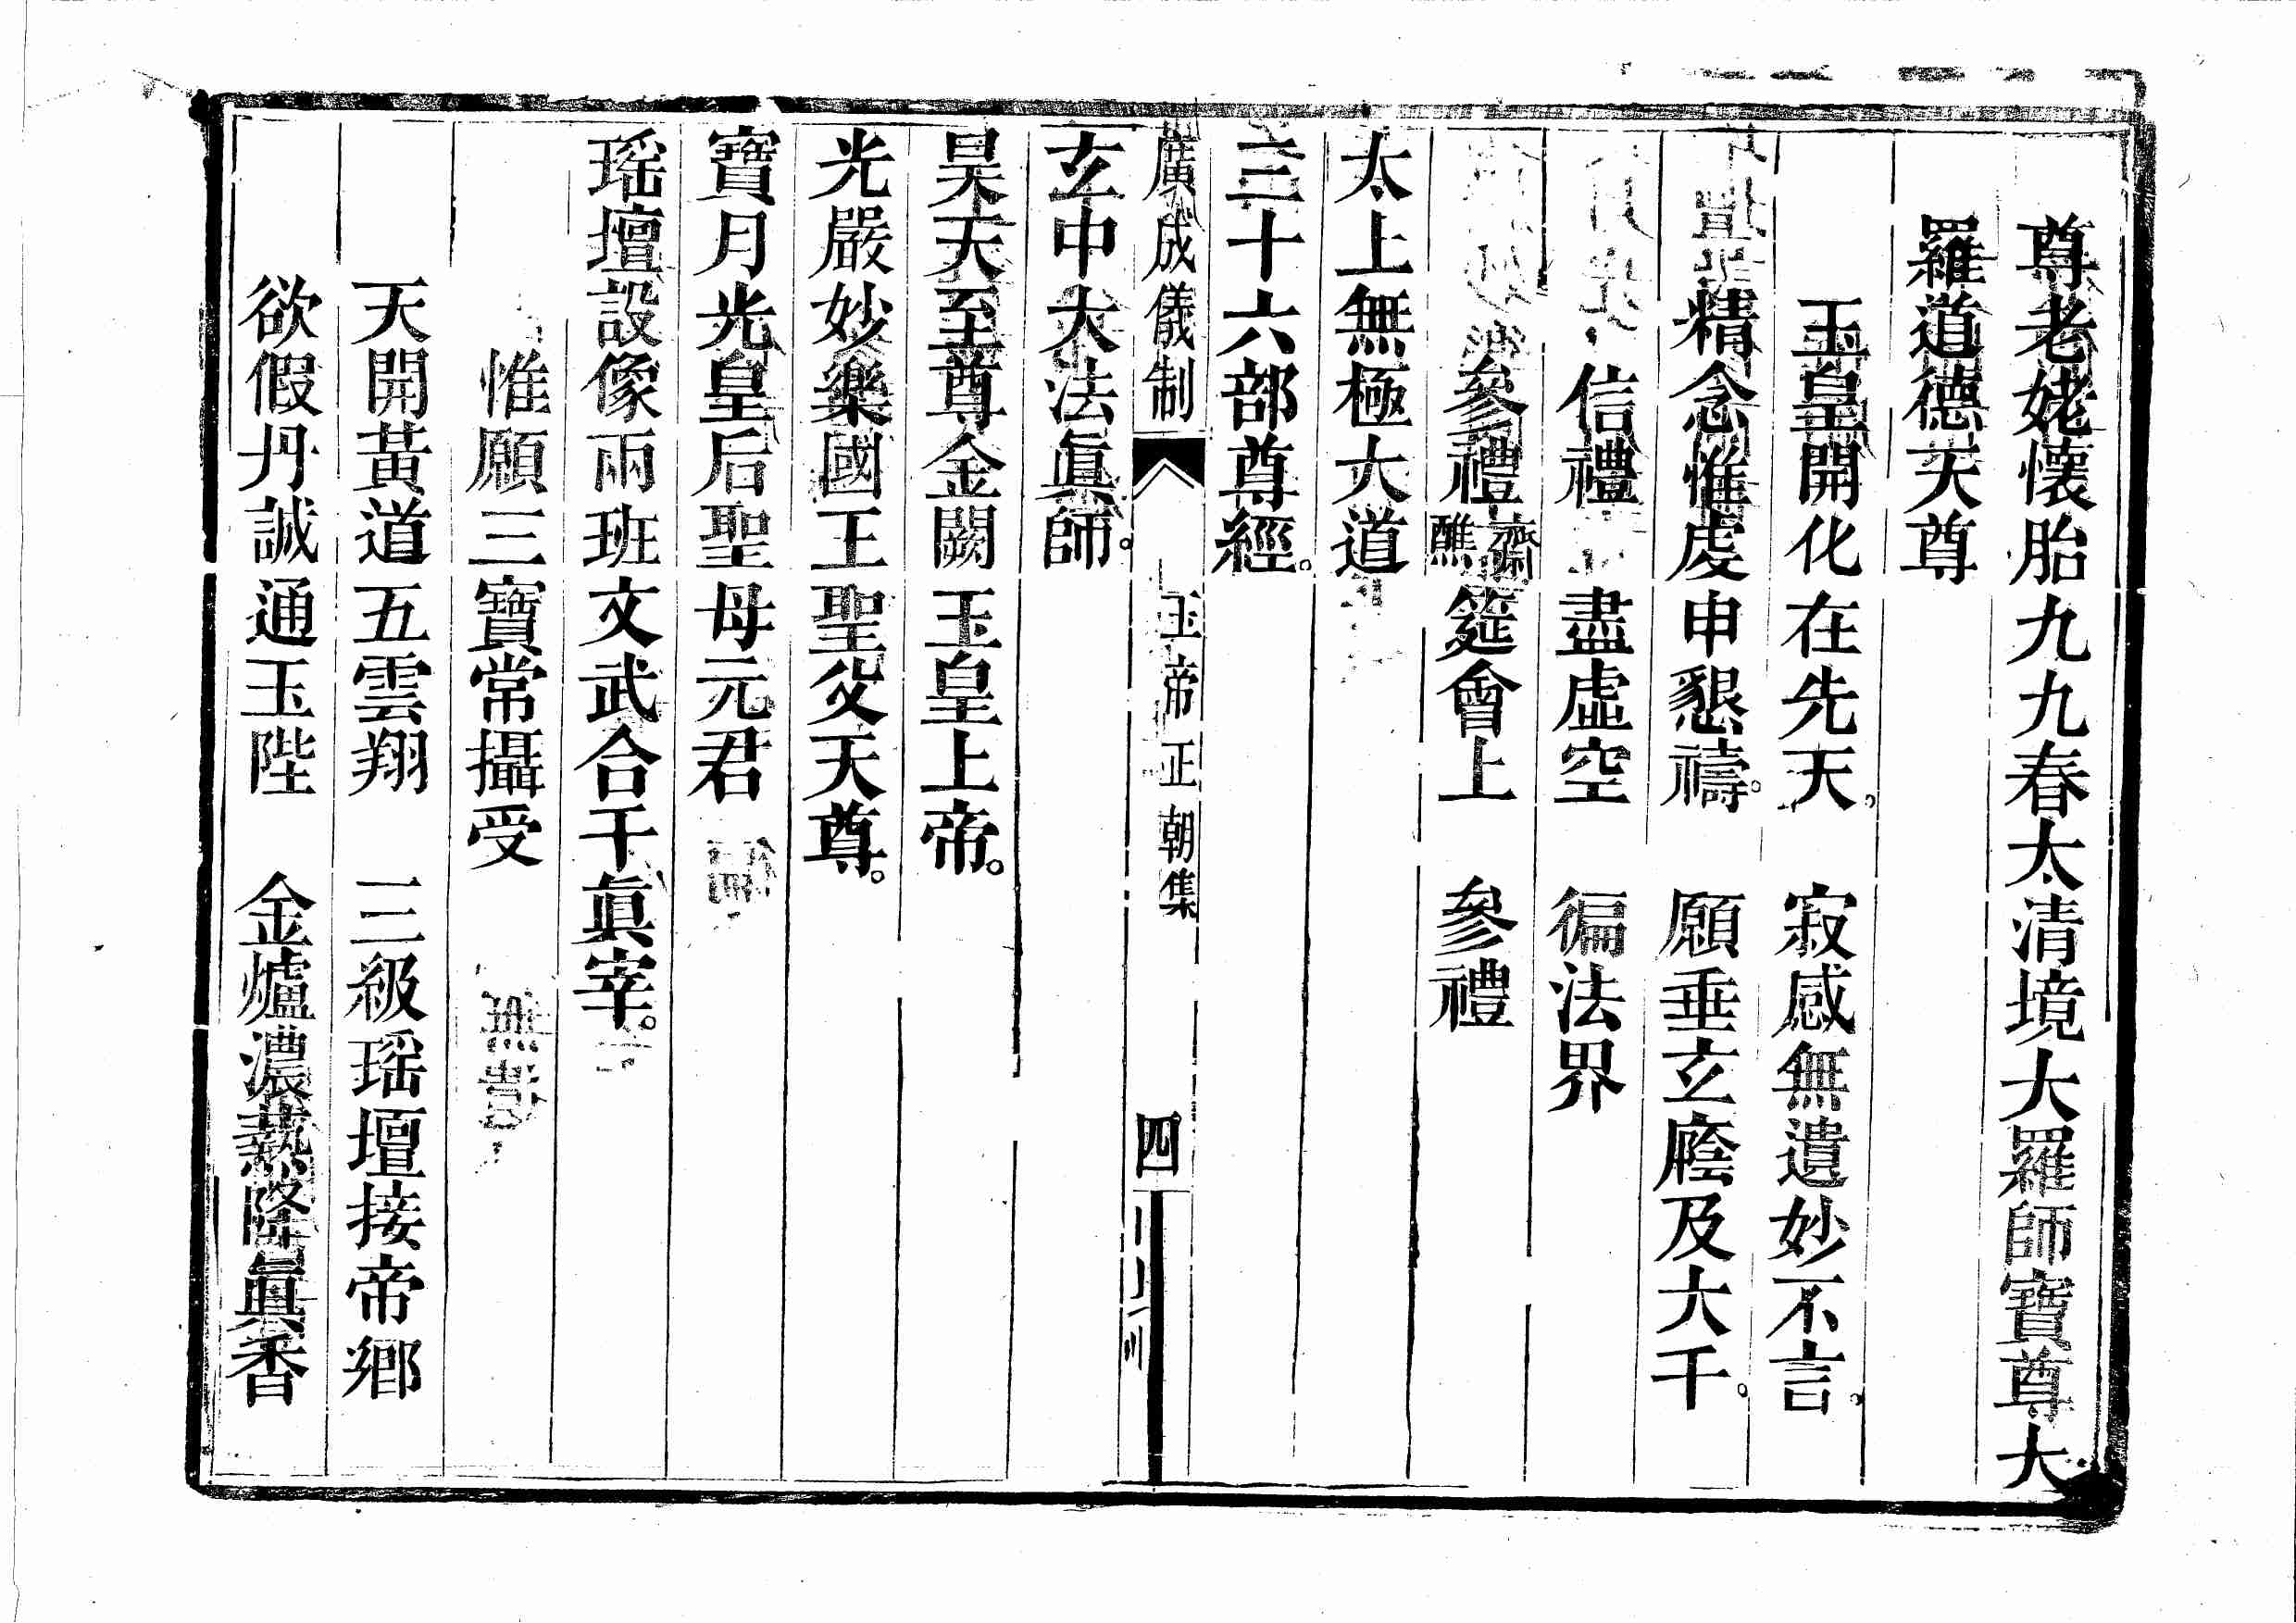 尊老姥懷胎九九春太清境大羅師寶尊大
羅道德天尊
玉皇開化在先天。　寂感無遺妙不言。
精念惟虔申懇禱。　願垂玄廕及大千。
信禮　盡虛空　徧法界
參禮齋醮筵會上　參禮
太上無極大道
三十六部尊經。
廣成儀制　玉帝正朝集　四
玄中大法眞師。
昊天至尊金闕玉皇上帝。
光嚴妙樂國王聖父天尊。
寶月光皇后聖母元君
瑶壇設像兩班文武合千眞宰。
惟願三寶常攝受
天開黃道五雲翔　三級瑶壇接帝鄉
欲假丹誠通玉陛　金爐濃熱降眞香